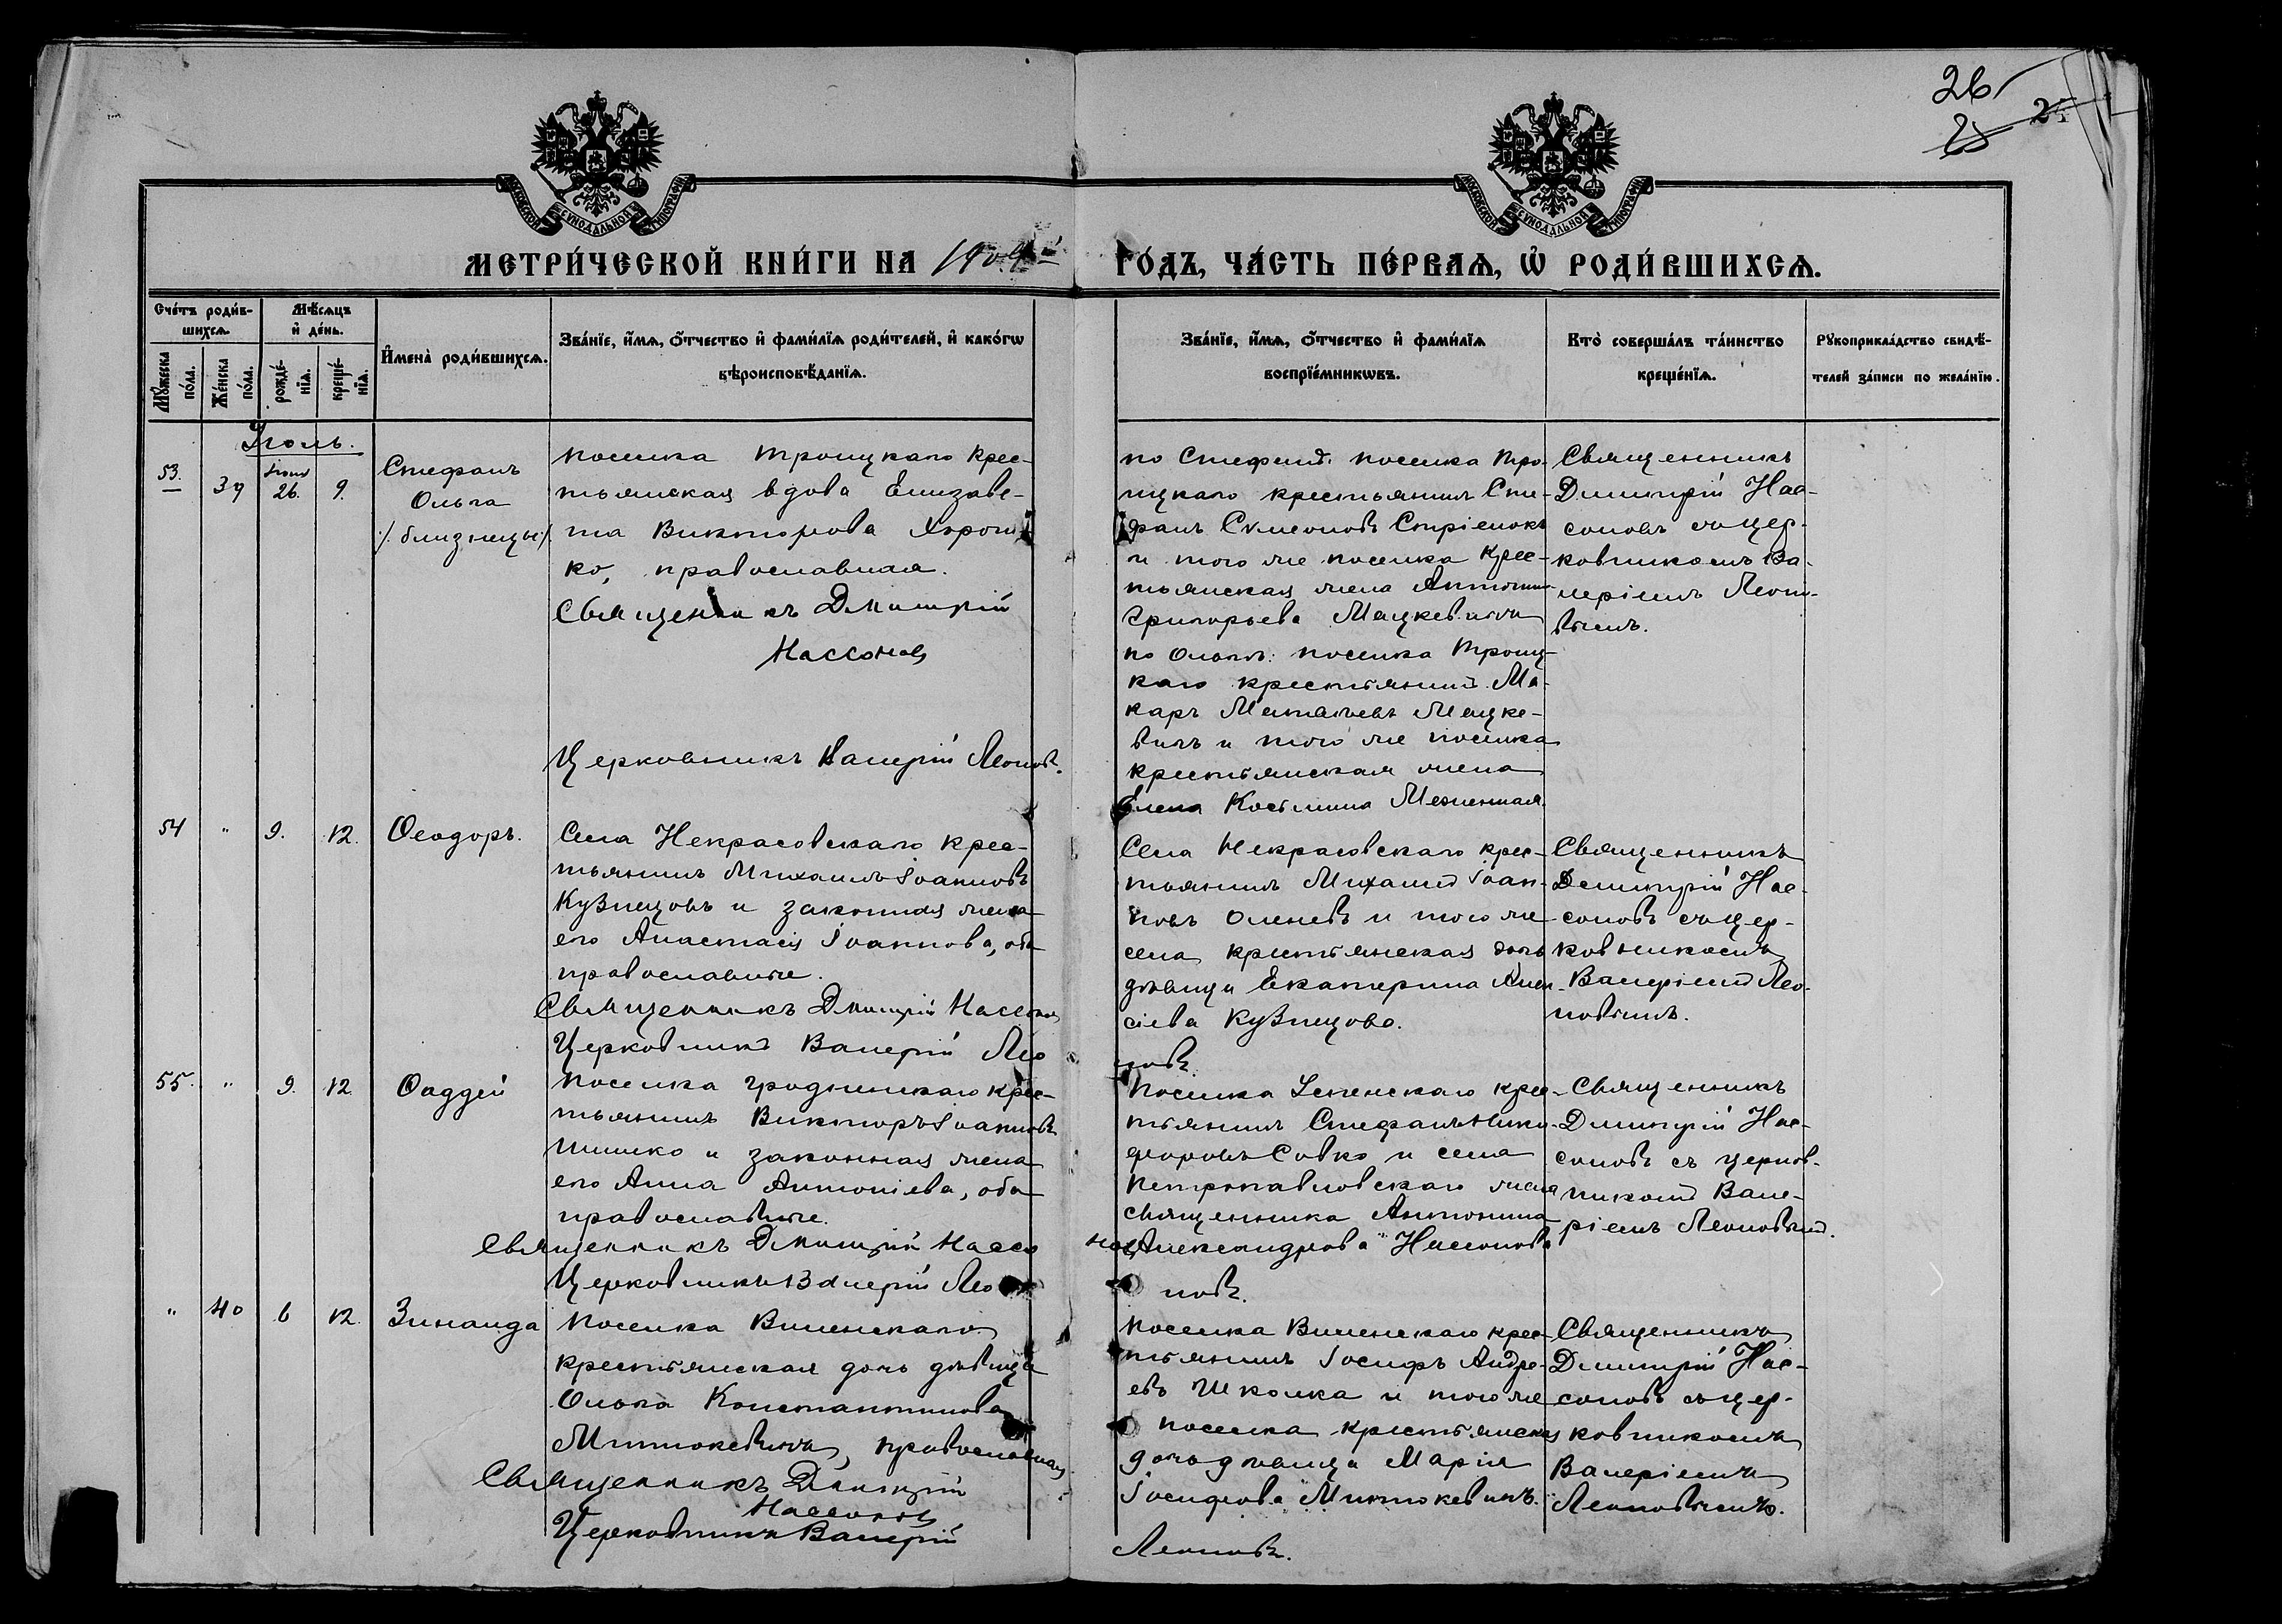 26
25
24
МОСКОВСКОЙ СѴНОДАЛЬНОЙ ТИПОГРАФІИ
МОСКОВСКОЙ СѴНОДАЛЬНОЙ ТИПОГРАФІИ
МЕТРИ́ЧЕСКОЙ КНИ́ГИ НА 1909й
ГО́ДЪ, ЧА́СТЬ ПЕ́РВАѦ, Ѡ҆ РОДИ́ВШИХСѦ.
Сче́тъ роди́в-
шихсѧ.
Мѣ́сѧцъ
и҆ де́нь.
Мꙋ́жеска
по́ла.
Же́нска
по́ла.
рожде́-
нїѧ.
креще́-
нїѧ.
И҆мена̀ роди́вшихсѧ.
Зва́нїе, и҆́мѧ, ѻ҆́тчество и҆ фами́лїѧ роди́телей, и҆ како́гѡ
вѣроисповѣ́данїѧ.
Зва́нїе, и҆́мѧ, ѻ҆́тчество и҆ фами́лїѧ
воспрїе́мникѡвъ.
Кто̀ соверша́лъ та́инство
креще́нїѧ.
Рꙋкоприкла́дство свидѣ́-
телей за́писи по жела́нїю.
Іюль.
53. 39 Іюня 26. 9.
Стефанъ
Ольга
/близнецы/
поселка Троицкаго крес-
тьянская вдова Елизаве-
та Викторова Хорош
ко, православная.
Священникъ Дмитрій
Нассонов
Церковникъ Валерій Леонов.
по Стефан. поселка Тро-
ицкаго крестьянинъ Сте-
фанъ Сѵмеоновъ
и того же поселка крес-
тьянская жена Антонина
Григорьева Мацкевичъ
по Ольге: поселка Троиц-
каго крестьянинъ Ма-
каръ Матвѣевъ Мацке-
вичъ и того же поселка
крестьянская жена
Елена Косьмина
Священникъ
Димитрій Нас-
соновъ съ цер-
ковникомъ Ва-
леріемъ Леоно-
вымъ.
54 " 9. 12. Ѳеодоръ.
Села Некрасовскаго крес-
тьянинъ Михаилъ Іоанновъ
Кузнецовъ и законная жена
его Анастасія Іоаннова, оба
православные.
Священникъ Дмитрій Нассонов
Церковникъ Валерій Лео
нов.
Села Некрасовскаго крес-
тьянинъ Михаилъ Іоан-
новъ Оленевъ и того же
села крестьянская дочь
дѣвица Екатерина Алек-
сіева Кузнецова.
Священникъ
Димитрій Нас-
соновъ съ цер-
ковникомъ
Валеріемъ Лео-
новымъ.
55. " 9. 12. Ѳаддей
Поселка Гродненскаго крес-
тьянинъ Викторъ Іоанновъ
Шишко и законная жена
его Анна Антоніева, оба
православные.
Священникъ Дмитрій Нассо
нов
Церковникъ Валерій Лео
нов.
Поселка Успенскаго крес-
тьянинъ Стефанъ Ники-
форовъ Совко и села
Петропавловскаго жена
священника Антонина
Александрова Нассонова
Священникъ
Димитрій Нас-
соновъ съ церков-
никомъ Вале-
ріемъ Леоновымъ.
" 40 6 12. Зинаида
Поселка Виленскаго
крестьянская дочь дѣвица
Ольга Константинова
Митюкевичъ, православная
Священникъ Дмитрій
Нассонов
Церковникъ Валерій
Леоновъ.
Поселка Виленскаго крес-
тьянинъ Іосифъ Андре-
евъ Школка и того же
поселка крестьянская
дочь дѣвица Марія
Іосифова Митюкевичъ.
Священникъ
Димитрій Нас-
соновъ съ цер-
ковникомъ
Валеріемъ
Леоновымъ.